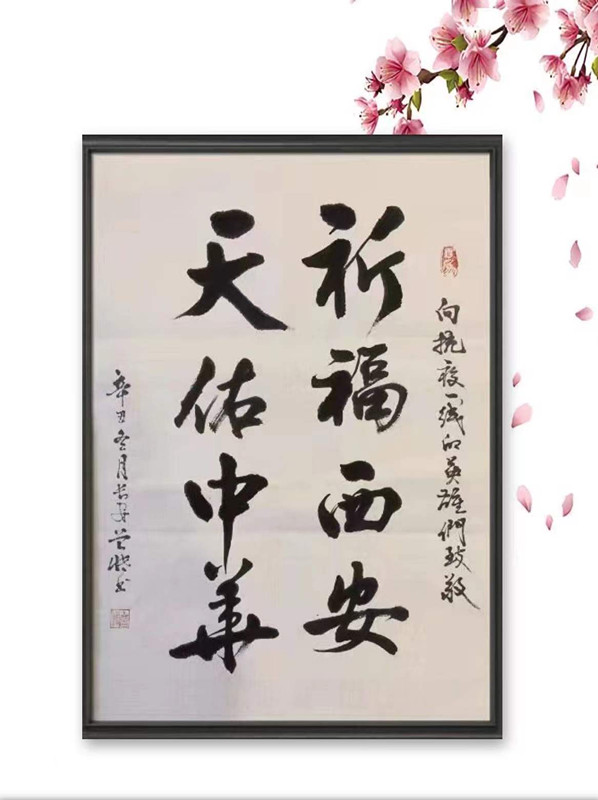 向抗疫一线的英雄們致敬
祈福西安
天佑中華
辛丑冬月长安
书